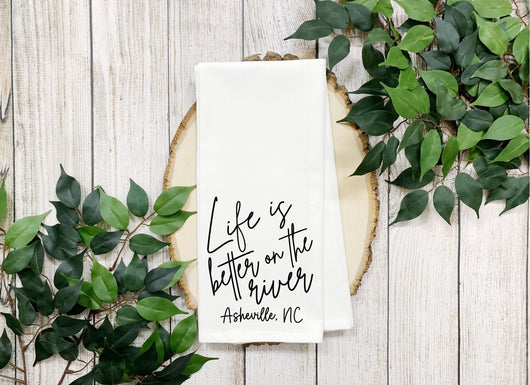 Life is
better on the
river
Asheville, NC